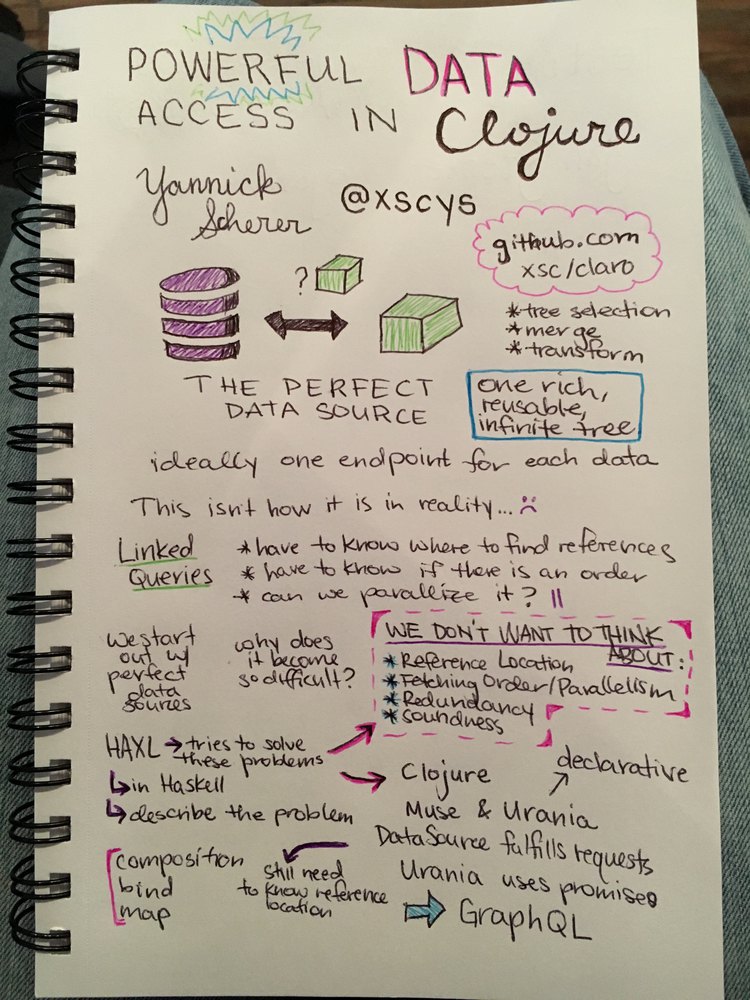 POWERFUL DATA
ACCESS IN Clojure
Yannick
Scherer
@xscys
github.com
xsc/claro
?
*tree selection
*merge
*transform
THE PERFECT
DATA SOURCE
one rich,
reusable,
infinite tree
ideally one endpoint for each data
This isn't how it is in reality... :(
Linked
Queries
*have to know where to find references
*have to know if there is an order
*can we parallize it? ||
We start
out w/
perfect
data
sources
why does
it become
so difficult?
WE DON'T WANT TO THINK
ABOUT:
*Reference Location
*Fetching Order/Parallelism
*Redundancy
*Soundness
HAXL → tries to solve
these problems
↳ in Haskell
↳ describe the problem
composition
bind
map
still need
to know reference
location
Clojure
declarative
Muse & Urania
DataSource fulfills requests
Urania uses promises
⇒ GraphQL